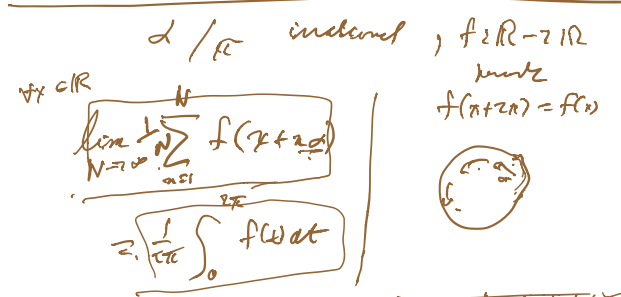 α/π irrational, f: ℝ → ℝ
∀x ∈ ℝ
f(x+2π) = f(x)
lim_{N→∞} 1/N ∑_{n=1}^{N} f(x+nα)
= 1/2π ∫_0^{2π} f(t) dt